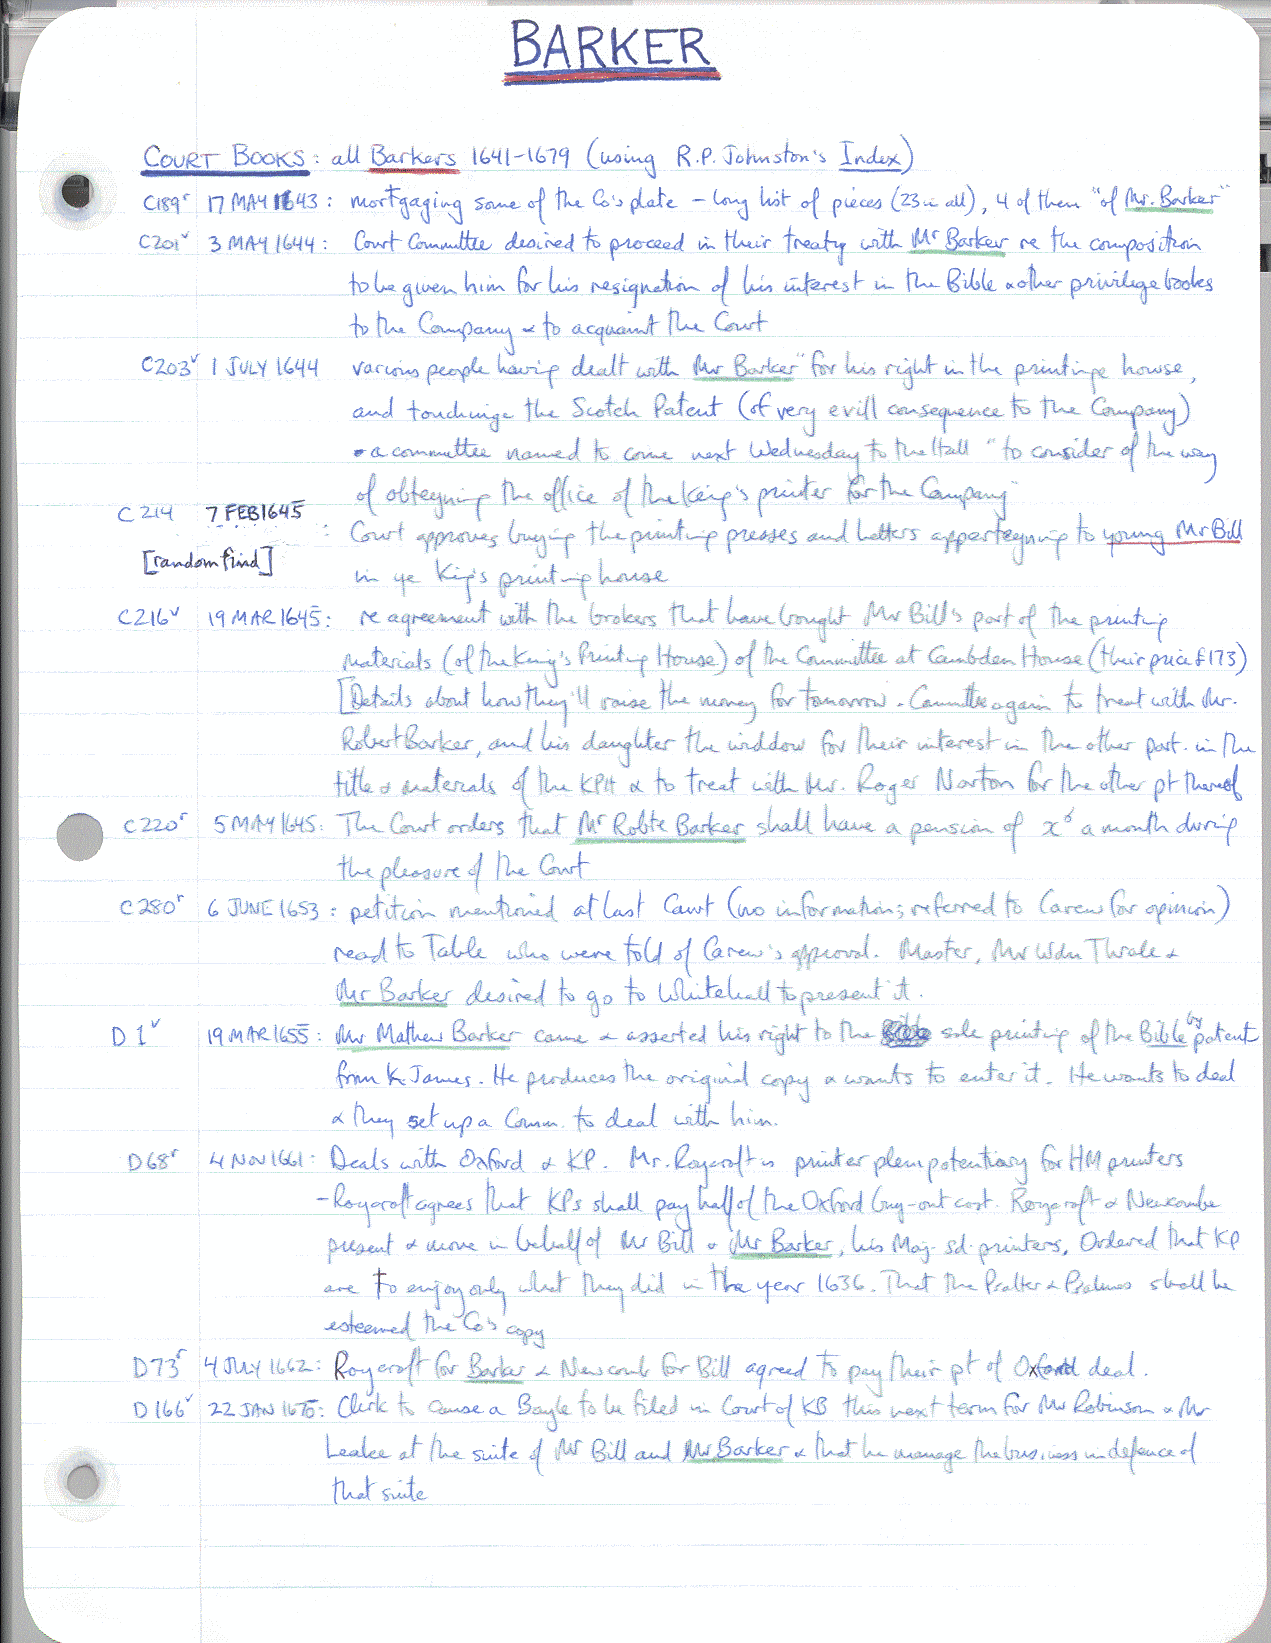 BARKER
COURT BOOKS: all Barkers 1641-1679 (using R.P. Johnston's Index)
C189r 17 MAY 1643: mortgaging some of the Co's plate - long list of pieces (23 in all), 4 of them "of Mr. Barker"
C201v 3 MAY 1644: Court Committee desired to proceed in their treaty with Mr Barker re the composition
to be given him for his resignation of his interest in the Bible & other privilege books
to the Company & to acquaint the Court
C203v 1 JULY 1644 various people having dealt with Mr Barker "for his right in the printinge howse,
and touchinge the Scotch Patent (of very evill consequence to the Company)
- a committee named to come next Wednesday to the Hall "to consider of the way
of obteyning the office of the King's printer for the Company"
C214 7 FEB 1645
: Court approves buying the printing presses and letters apperteyning to young Mr Bill
[random find]
in ye King's printing house
C216v 19 MAR 1645: re agreement with the brokers that have bought Mr Bill's part of the printing
materials (of the King's Printing House) of the Committee at Cambden House (their price £175)
[Details about how they'll raise the money for tomorrow. Committee again to treat with Mr.
Robert Barker, and his daughter the widdow for their interest in the other part. in the
title & materials of the KPH & to treat with Mr. Roger Norton for the other pt thereof
C220r 5 MAY 1645: The Court orders that Mr Robte Barker shall have a pension of xs a month during
the pleasure of the Court
C280r 6 JUNE 1653: petition mentioned at last Court (no information; referred to Carew for opinion)
read to Table who were told of Carew's approval. Master, Mr Wdn Thrale &
Mr Barker desired to go to Whitehall to present it.
D1v 19 MAR 1655: Mr Mathew Barker came & asserted his right to the sole printing of the Bible by patent
from K. James. He produces the original copy & wants to enter it. He wants to deal
& they set up a Comm. to deal with him.
D68r 4 NOV 1661: Deals with Oxford & KP. Mr. Roycroft is printer plenipotentiary for HM printers
- Roycroft agrees that KPs shall pay half of the Oxford buy-out cost. Roycroft & Newcombe
present & move in behalf of Mr Bill & Mr Barker, his Maj. sd. printers, Ordered that KP
are to enjoy only what they did in the year 1636. That the Psalter & Psalmes shall be
esteemed the Co's copy
D73r 4 JULY 1662: Roycroft for Barker & Newcomb for Bill agreed to pay their pt of Oxford deal.
D166v 22 JAN 1675: Clerk to cause a Bayle to be filed in Court of KB this next term for Mr Robinson & Mr
Leake at the suite of Mr Bill and Mr Barker & that he manage the business in defence of
that suite